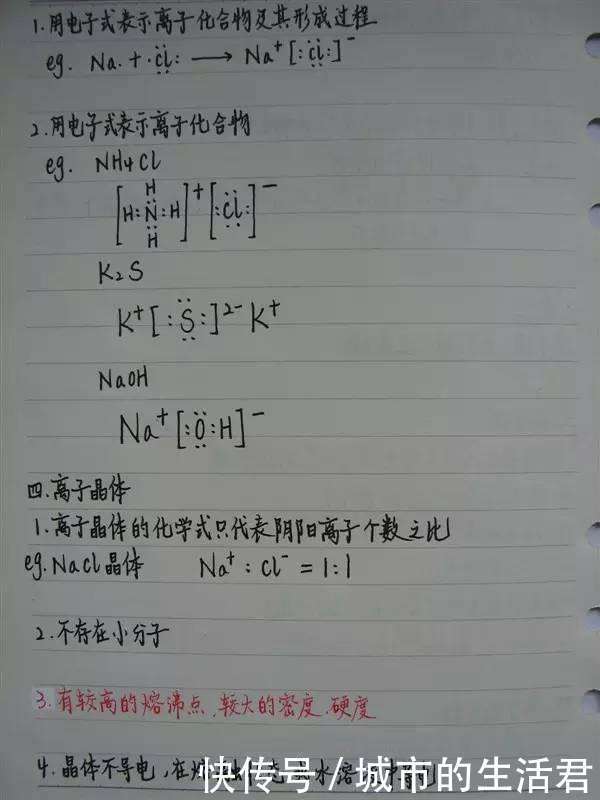 1.用电子式表示离子化合物及其形成过程
eg. Na· + ·Cl: ⟶ Na⁺[:Cl:]⁻
2.用电子式表示离子化合物
eg. NH4Cl
H
[H:N:H]⁺[:Cl:]⁻
H
K₂S
K⁺[:S:]²⁻K⁺
NaOH
Na⁺[:O:H]⁻
四.离子晶体
1.离子晶体的化学式只代表阴阳离子个数之比
eg.NaCl晶体 Na⁺:Cl⁻=1:1
2.不存在小分子
3.有较高的熔沸点,较大的密度、硬度
4.晶体不导电,在
快传号/城市的生活君